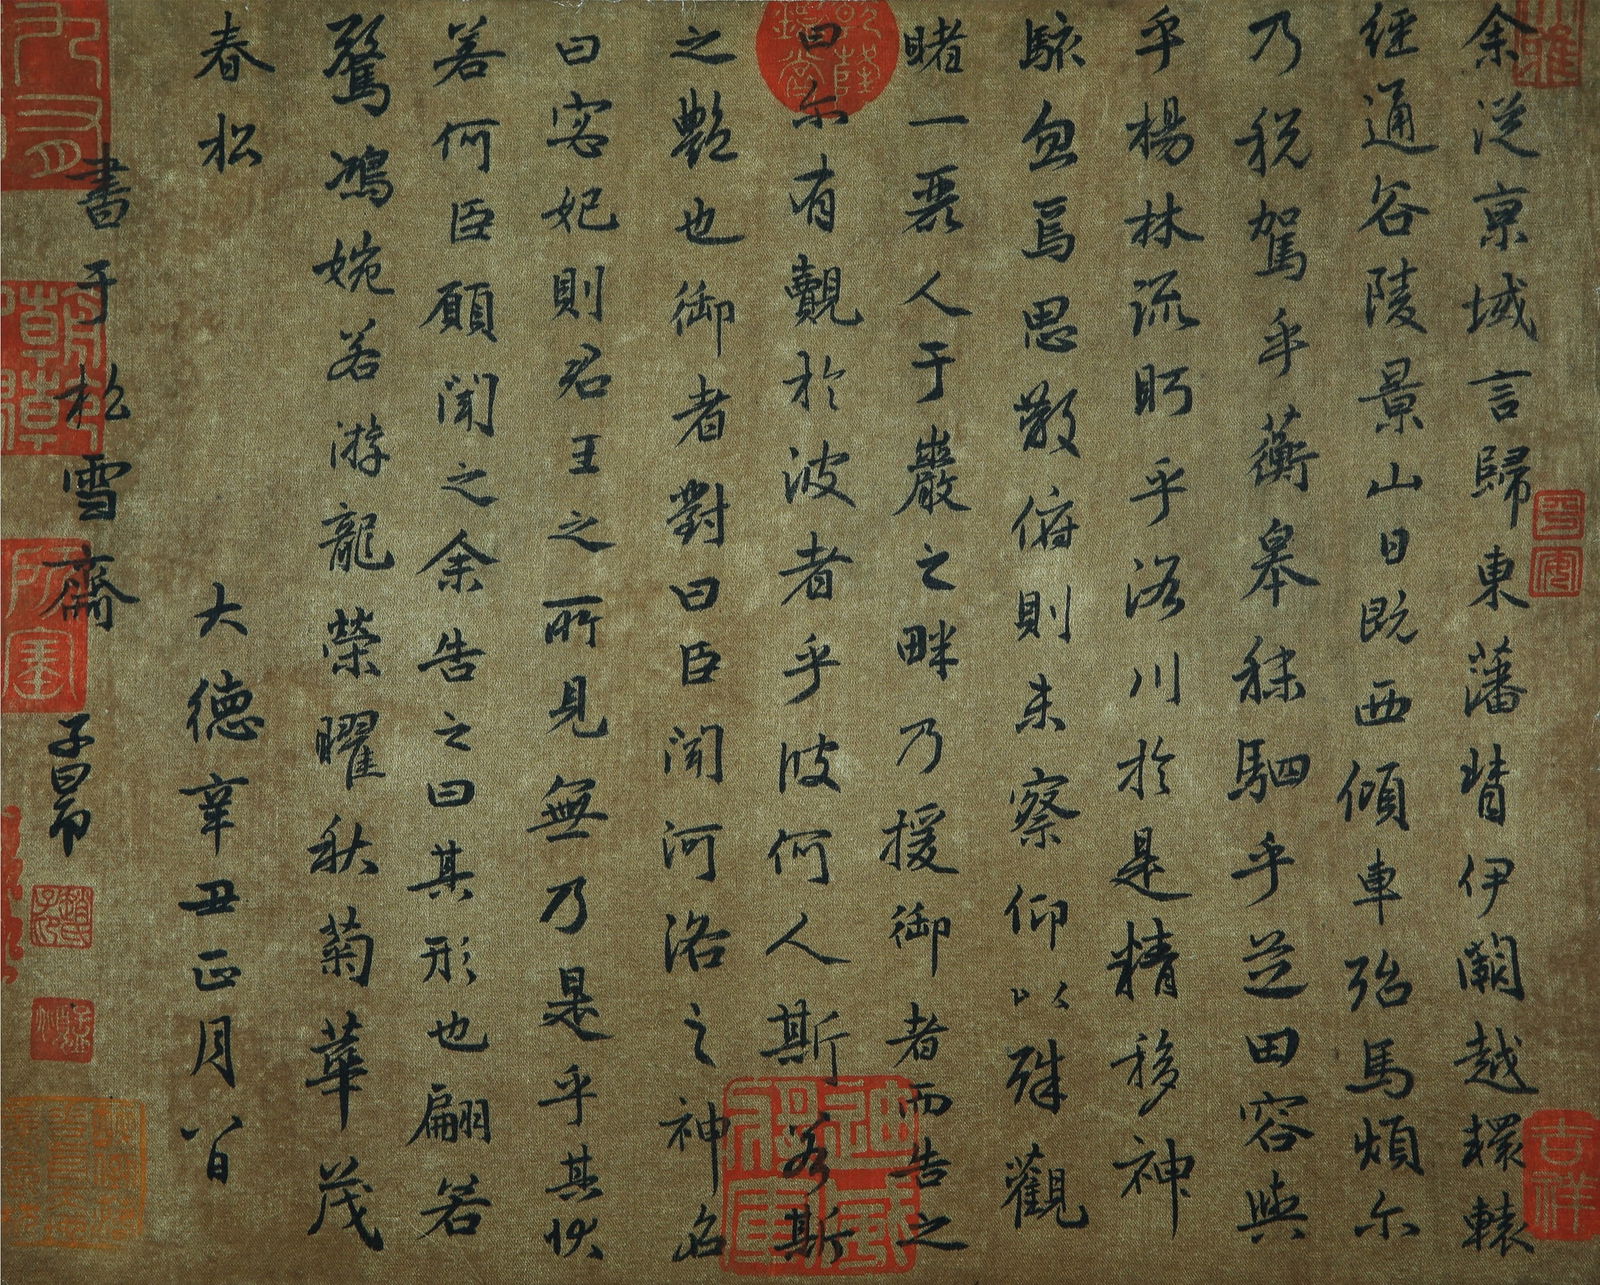 余從京域言歸東藩背伊闕越轘轅
經通谷陵景山日既西傾車殆馬煩尔
乃税駕乎蘅皋秣駟乎芝田容與
乎楊林流眄乎洛川於是精移神
駭忽焉思散俯則未察仰以殊觀
睹一麗人于巖之畔乃援御者而告之
曰尔有覿於波者乎彼何人斯若斯
之艷也御者對曰臣聞河洛之神名
曰宓妃則君王之所見無乃是乎其狀
若何臣願聞之余告之曰其形也翩若
驚鴻婉若游龍榮曜秋菊華茂
春松
大德辛丑正月八日
書于松雪齋 子昂
吉祥
乾隆鑑賞